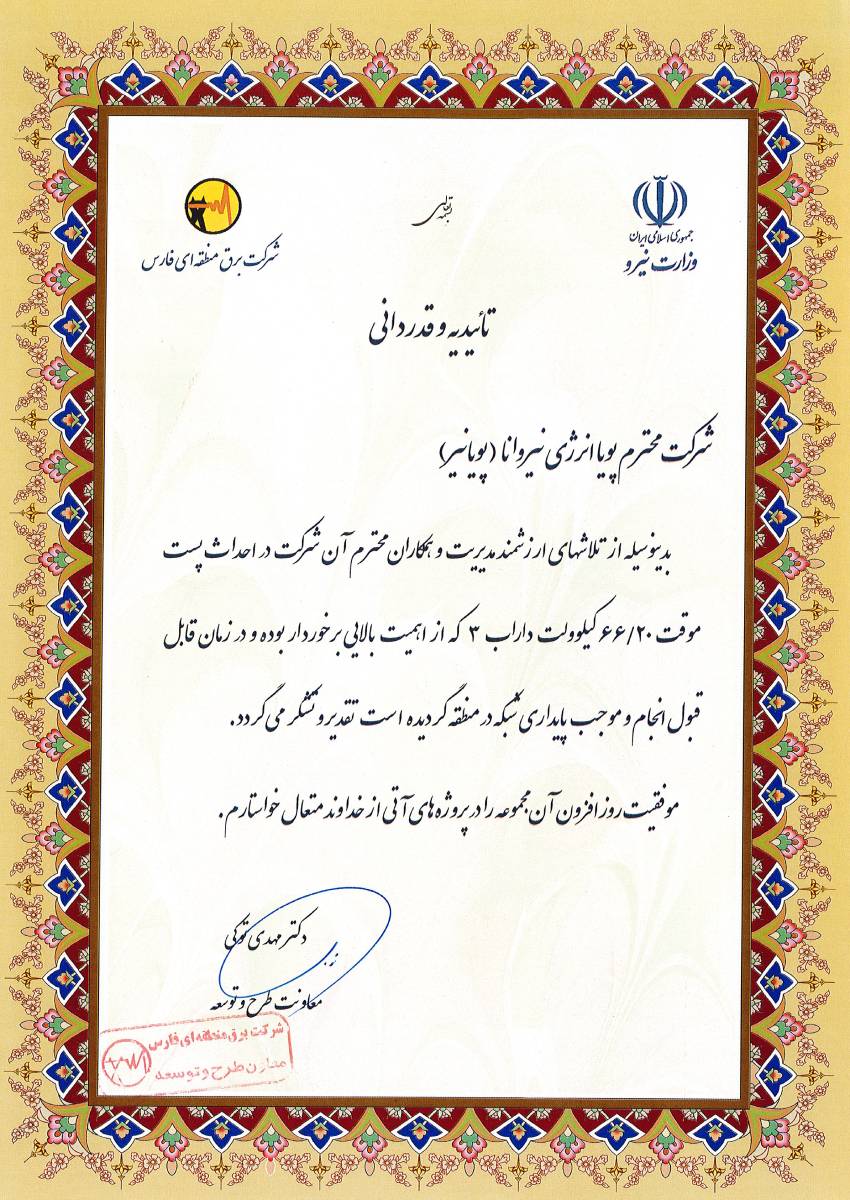 بسمه تعالی
جمهوری اسلامی ایران
وزارت نیرو
شرکت برق منطقه ای فارس
تائیدیه و قدردانی
شرکت محترم پویا انرژی نیروانا (پویانیر)
بدینوسیله از تلاشهای ارزشمند مدیریت و همکاران محترم آن شرکت در احداث پست
موقت ۶۶/۲۰ کیلوولت داراب ۳ که از اهمیت بالایی برخوردار بوده و در زمان قابل
قبول انجام و موجب پایداری شبکه در منطقه گردیده است تقدیر و تشکر می گردد.
موفقیت روز افزون آن مجموعه را در پروژه های آتی از خداوند متعال خواستارم.
دکتر مهدی تورکی
معاونت طرح و توسعه
شرکت برق منطقه ای فارس
معاون طرح و توسعه